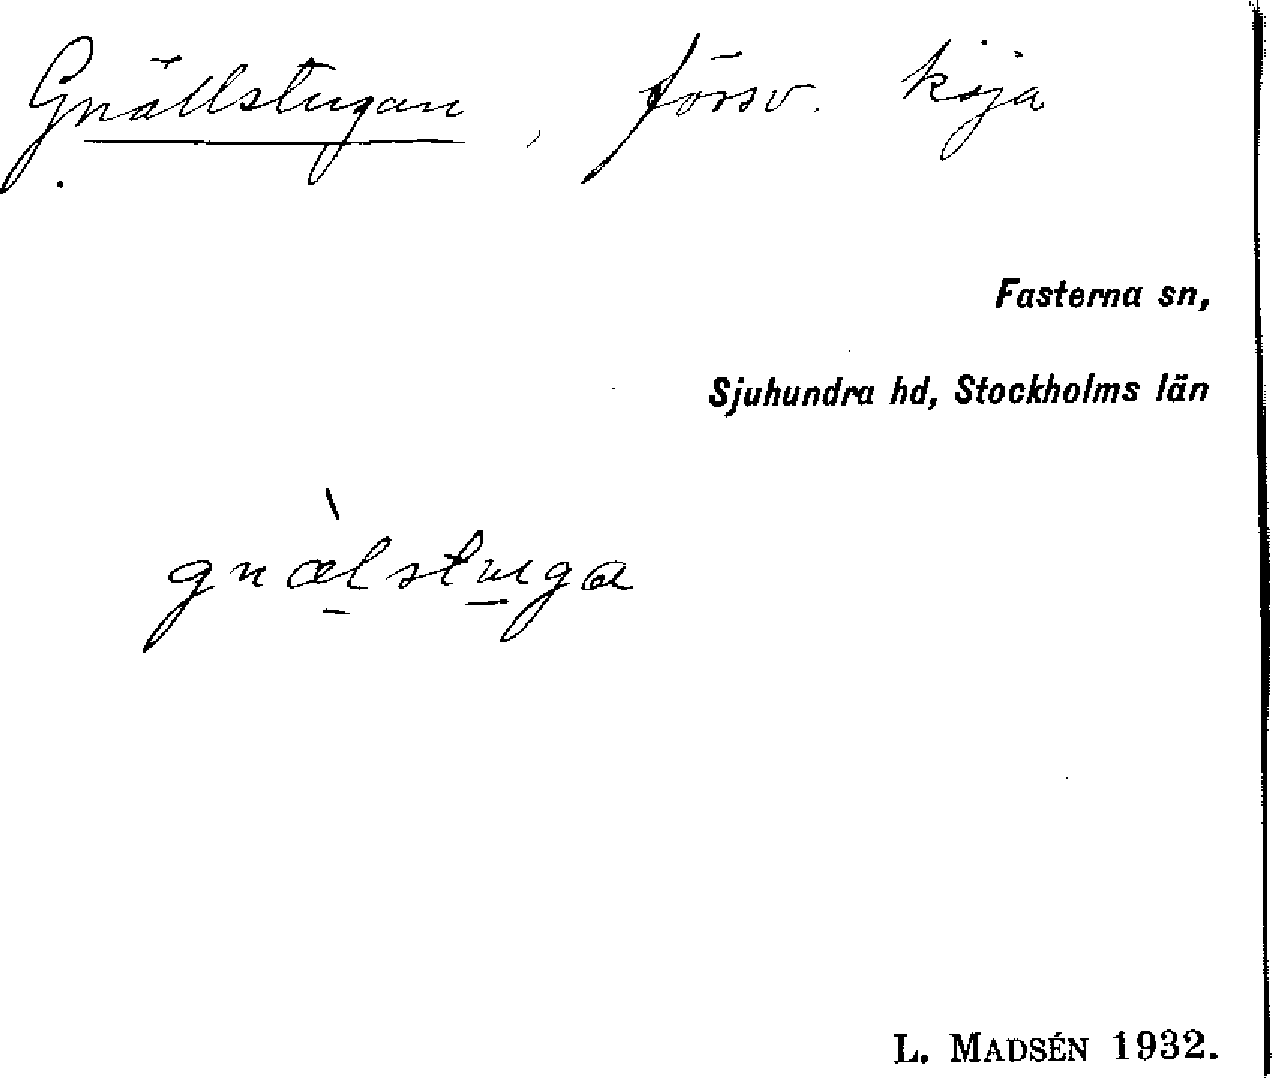 Gnällstugan, försv. koja
Fasterna sn,
Sjuhundra hd, Stockholms län
gnælstuga
L. MADSÉN 1932.